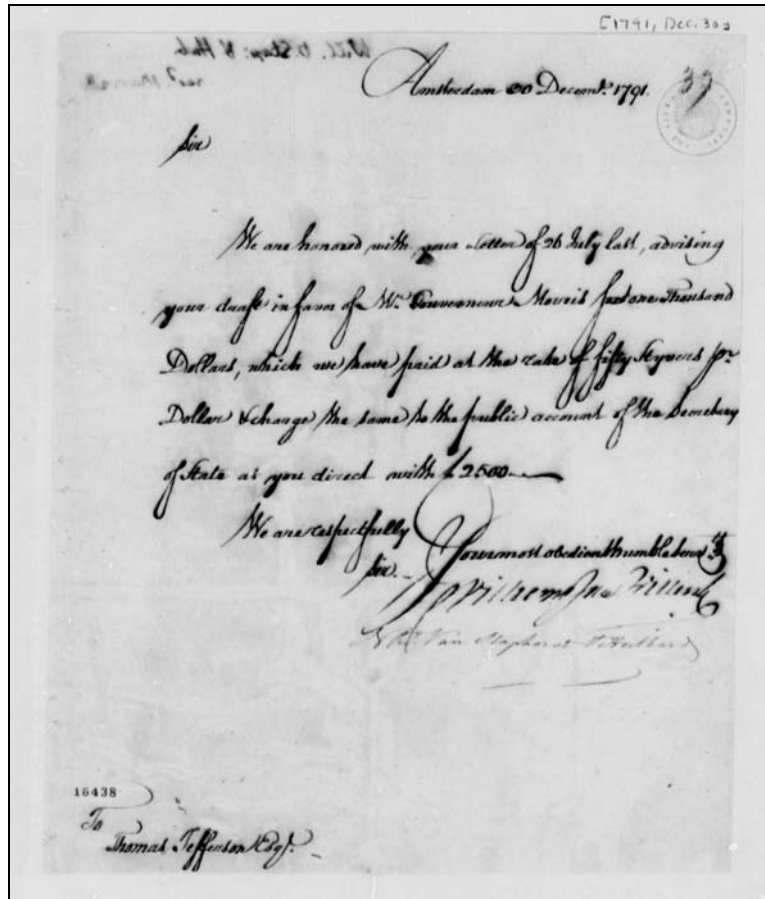 [1791, Dec. 30]
Will. V. Stap: & Hub
recd March
39
Amsterdam 30 Decemr. 1791.
Sir
We are honored with your Letter of 26 July last, advising
your draft in favor of Mr. Gouverneur Morris for one Thousand
Dollars, which we have paid at the rate of fifty Styvers pr.
Dollar & charge the same to the public account of the Secretary
of State as you direct with ƒ2500.—
We are respectfully
Sir.
Your most obedient humble servts.
Wilhem & Jan Willink
N & J. Van Staphorst & Hubbard
16438
To
Thomas Jefferson Esqr.